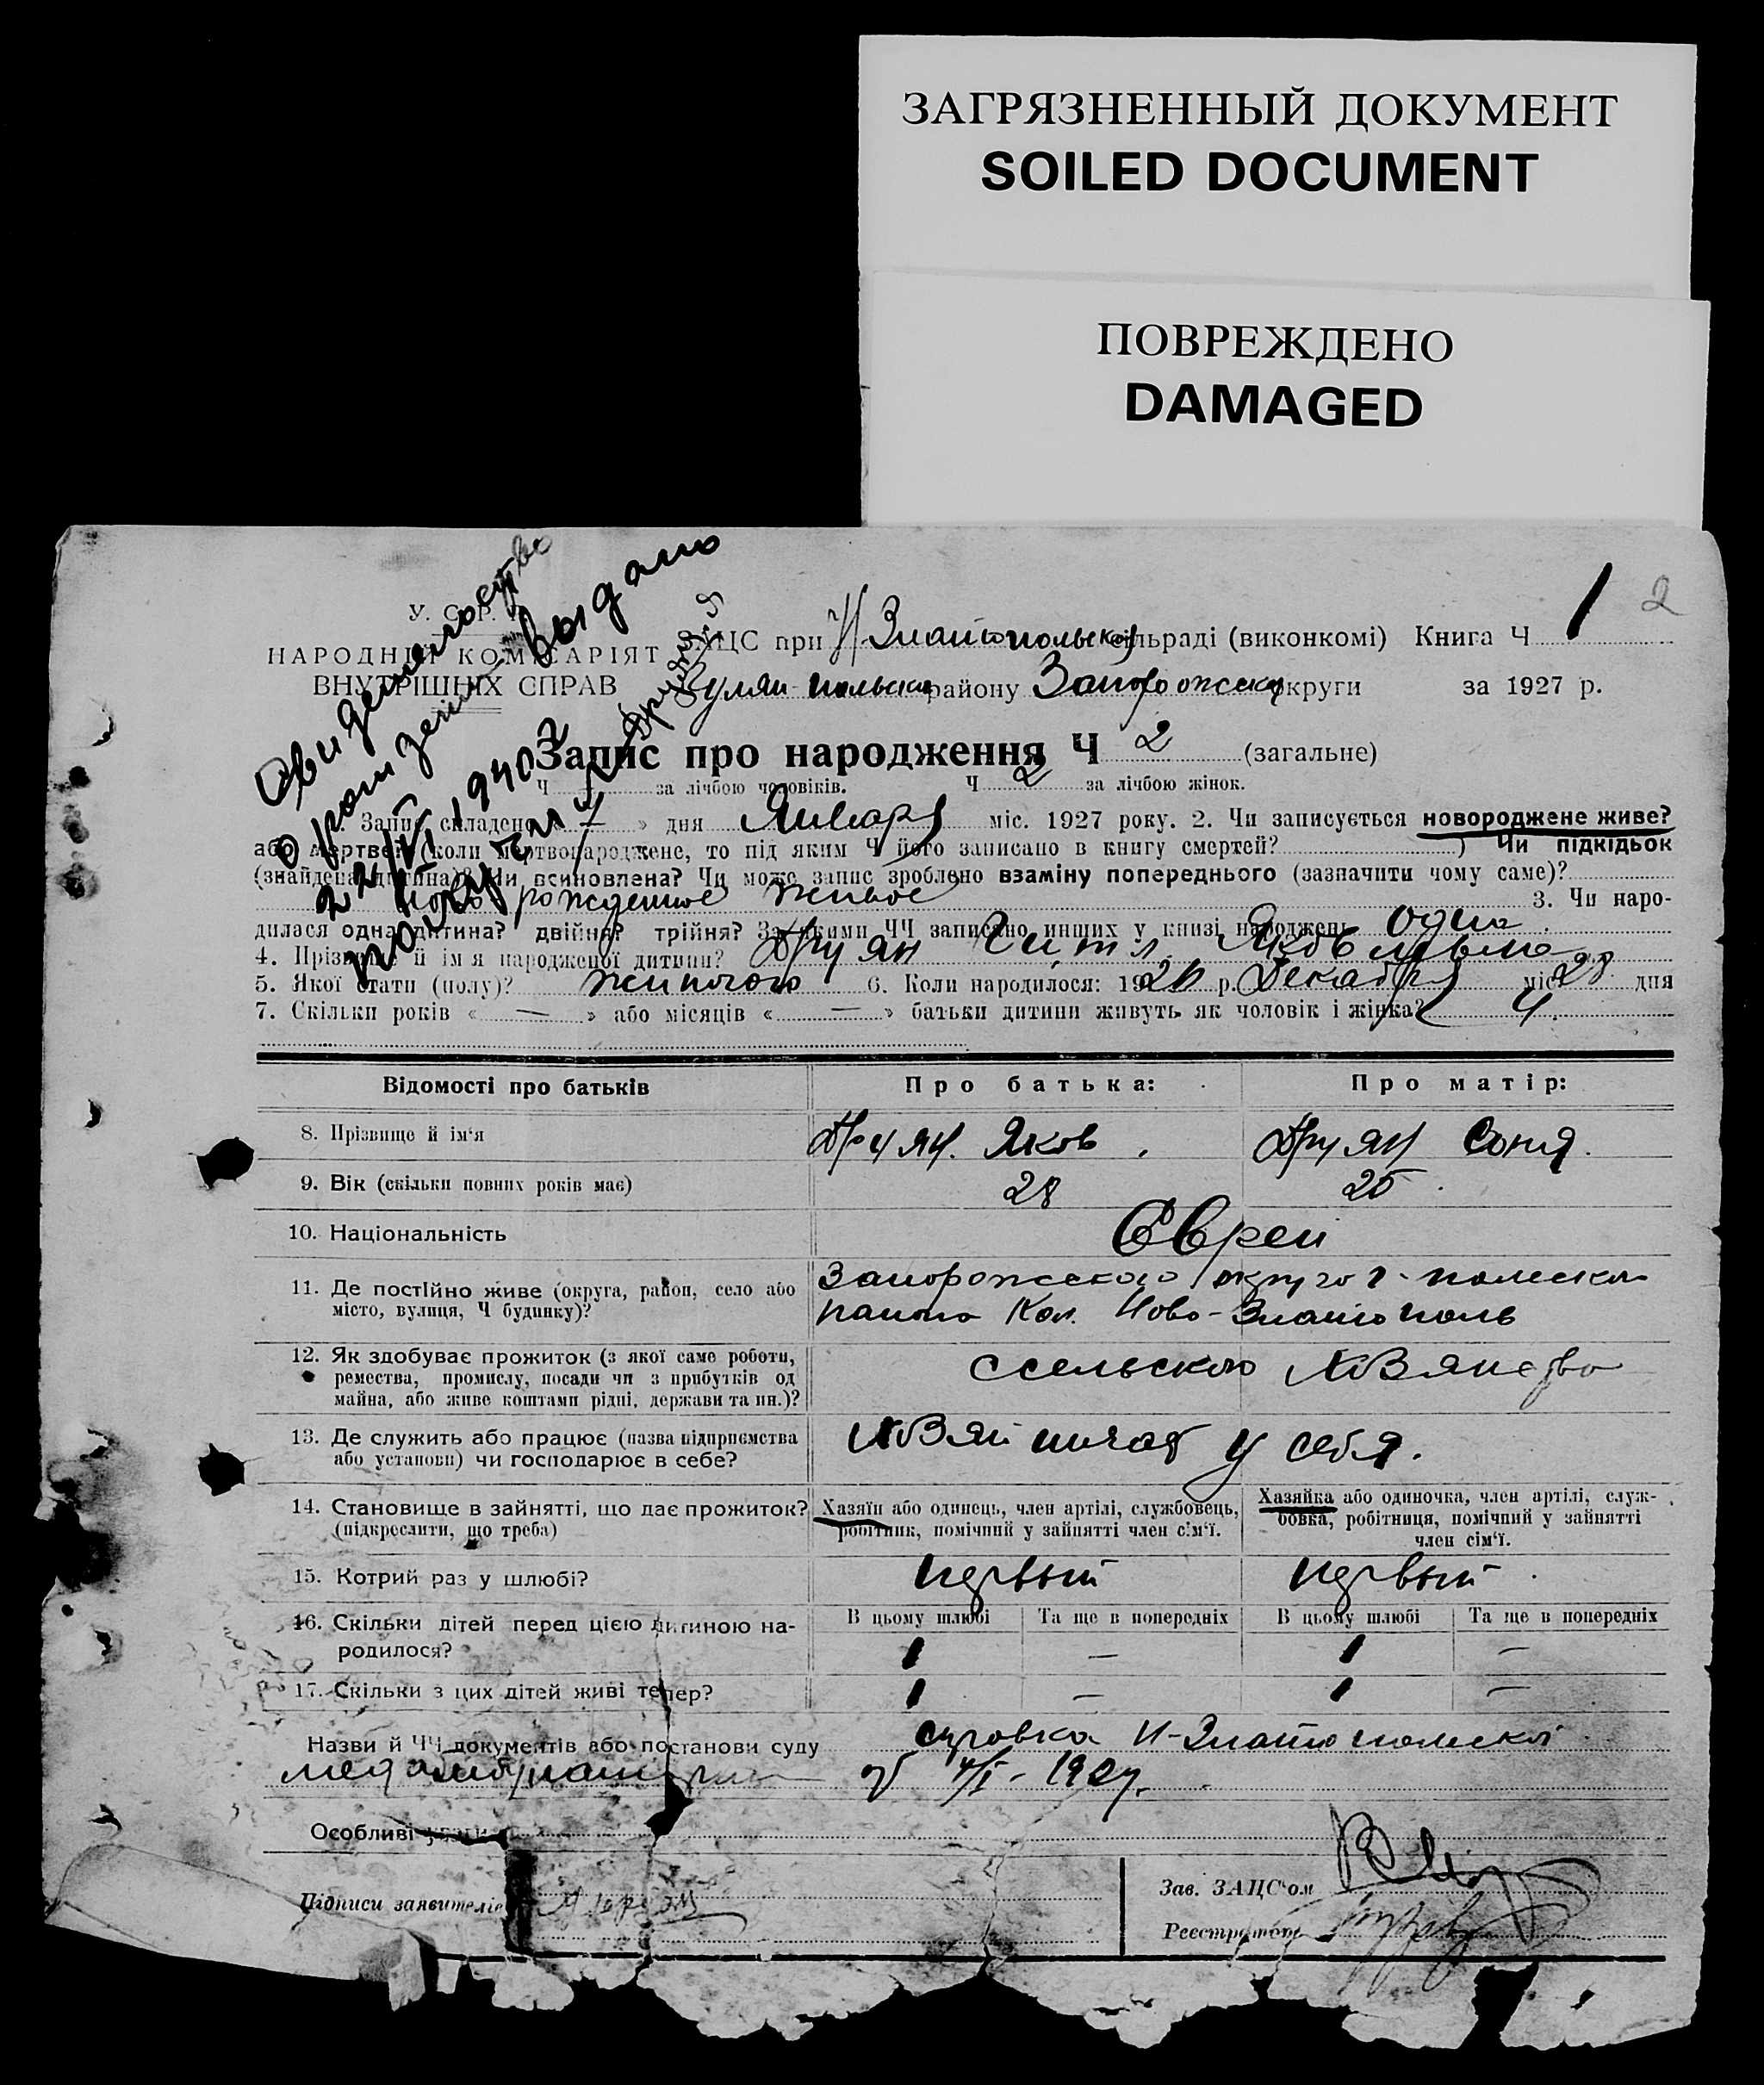 ЗАГРЯЗНЕННЫЙ ДОКУМЕНТ
SOILED DOCUMENT
ПОВРЕЖДЕНО
DAMAGED
1 2
Свидетельство
о рождении выдано
22/VI 1940 г.
У. С. Р. Р.
НАРОДНІЙ КОМІСАРІЯТ
ВНУТРІШНІХ СПРАВ
ЗАЦС при Н Златопольской сільраді (виконкомі) Книга Ч 1
Гуляй-польского району Запорожской округи за 1927 р.
Запис про народження Ч 2 (загальне)
Ч за лічбою чоловіків. Ч 2 за лічбою жінок.
1. Запис складено « 7 » дня Января міс. 1927 року. 2. Чи записується новороджене живе?
або мертве? (коли мертвонароджене, то під яким Ч його записано в книгу смертей? ) Чи підкідьок
(знайдена дитина)? Чи всиновлена? Чи може запис зроблено взаміну попереднього (зазначити чому саме)?
новорожденное живое 3. Чи наро-
дилася одна дитина? двійня? трійня? За якими ЧЧ записано инших у книзі народжень одна
4. Прізвище й імя народженої дитини? Друян Яковлевна
5. Якої стати (полу)? женского 6. Коли народилося: 1926 р. Декабря міс. 28 дня
7. Скільки років « — » або місяців « — » батьки дитини живуть як чоловік і жінка? 4.
Відомості про батьків Про батька: Про матір:
8. Прізвище й ім'я Друян Яков. Друян Соня.
9. Вік (скільки повних років має) 28 25.
10. Національність Евреи
11. Де постійно живе (округа, район, село або Запорожского округа Г-польского
місто, вулиця, Ч будинку)? района Кол. Ново-Златополь
12. Як здобуває прожиток (з якої саме роботи,
ремества, промислу, посади чи з прибутків од
майна, або живе коштами рідні, держави та ин.)?
13. Де служить або працює (назва підприємства
або установи) чи господарює в себе? у себя.
14. Становище в зайнятті, що дає прожиток? Хазяїн або одинець, член артілі, службовець, Хазяйка або одиночка, член артілі, служ-
(підкреслити, що треба) робітник, помічний у зайнятті член сім'ї. бовка, робітниця, помічний у зайнятті
член сім'ї.
15. Котрий раз у шлюбі? первый первый
В цьому шлюбі Та ще в попередніх В цьому шлюбі Та ще в попередніх
16. Скільки дітей перед цією дитиною на-
родилося? 1 — 1 —
17. Скільки з цих дітей живі тепер? 1 — 1 —
Назви й ЧЧ документів або постанови суду справка Н-Златопольской
от 4/I - 1927.
Особливі
Підписи заявителів
Зав. ЗАЦС'ом
Реєстратор